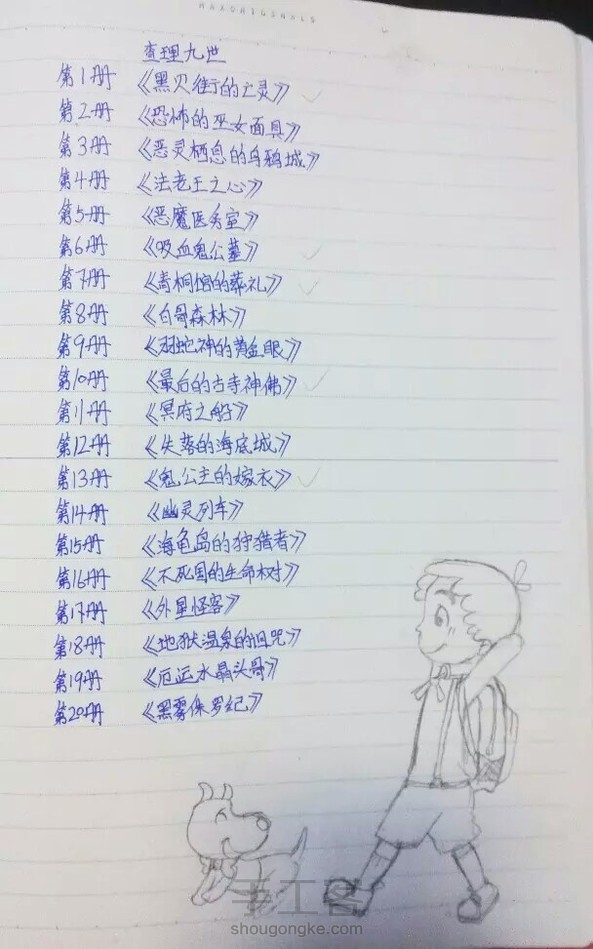 查理九世
第1册 《黑贝街的亡灵》
第2册 《恐怖的巫女面具》
第3册 《恶灵栖息的乌鸦城》
第4册 《法老王之心》
第5册 《恶魔医务室》
第6册 《吸血鬼公墓》
第7册 《青桐馆的葬礼》
第8册 《白骨森林》
第9册 《羽蛇神的黄金眼》
第10册 《最后的古寺神佛》
第11册 《冥府之船》
第12册 《失落的海底城》
第13册 《鬼公主的嫁衣》
第14册 《幽灵列车》
第15册 《海龟岛的狩猎者》
第16册 《不死国的生命树》
第17册 《外星怪客》
第18册 《地狱温泉的诅咒》
第19册 《厄运水晶头骨》
第20册 《黑雾侏罗纪》
手工客
shougongke.com